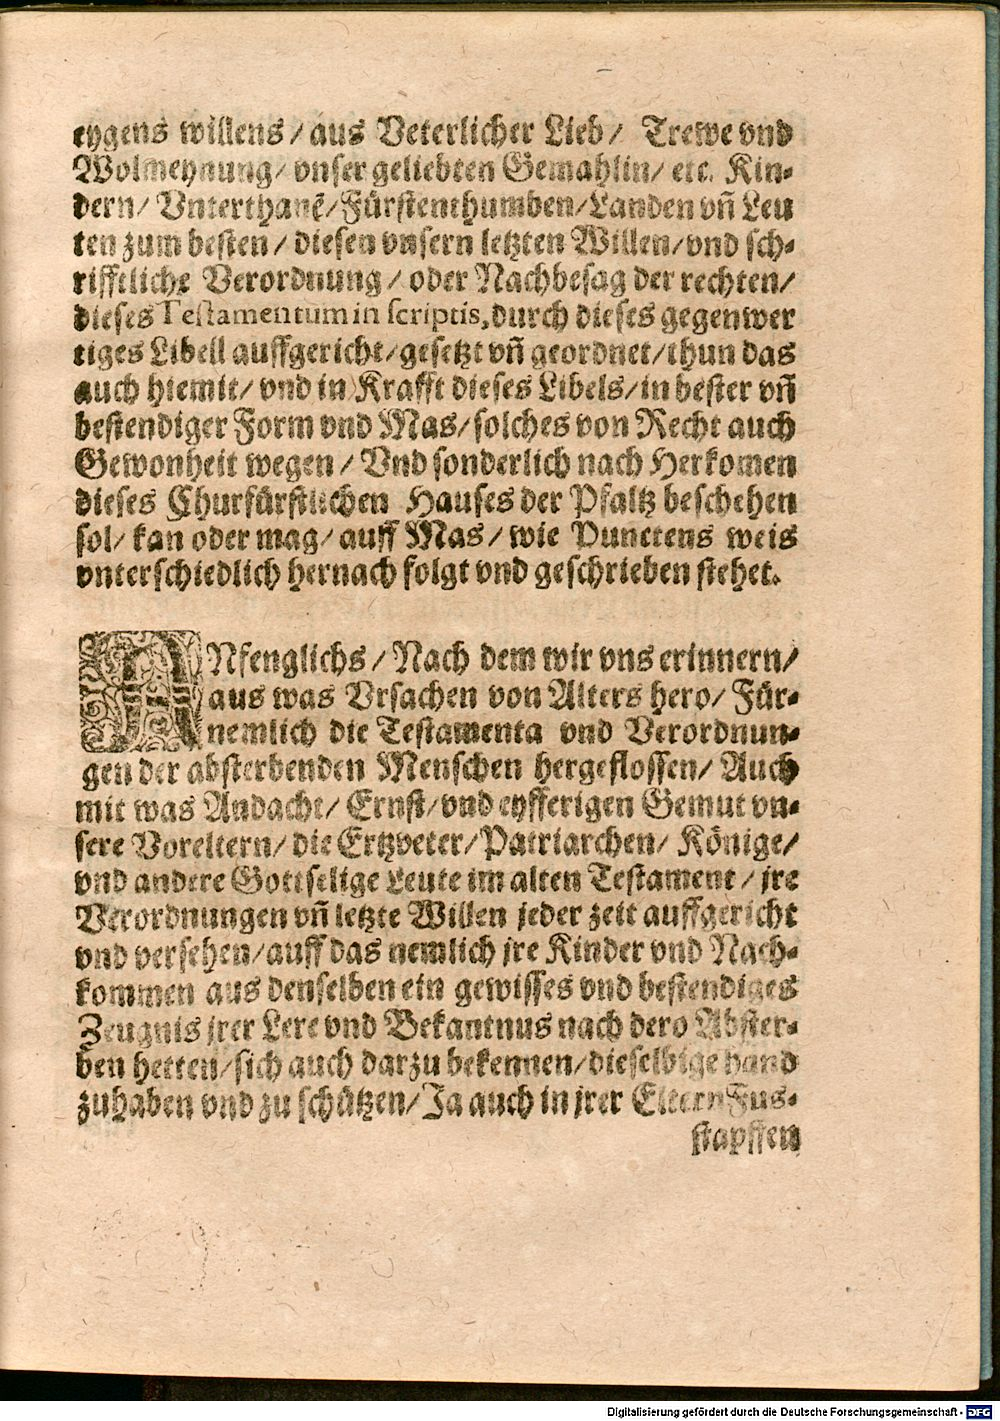 eygens willens/ aus Veterlicher Lieb/ Trewe vnd
Wolmeynung/ vnser geliebten Gemahlin/ etc. Kin-
dern/ Vnterthanẽ/ Fürstenthumben/ Landen vñ Leu
ten zum besten/ diesen vnsern letzten Willen/ vnd sch-
rifftliche Verordnung/ oder Nachbesag der rechten/
dieses Testamentum in scriptis, durch dieses gegenwer
tiges Libell auffgericht/ gesetzt vñ geordnet/ thun das
auch hiemit/ vnd in Krafft dieses Libels/ in bester vñ
bestendiger Form vnd Mas/ solches von Recht auch
Gewonheit wegen/ Vnd sonderlich nach Herkomen
dieses Churfürstlichen Hauses der Pfaltz beschehen
sol/ kan oder mag/ auff Mas/ wie Punctens weis
vnterschiedlich hernach folgt vnd geschrieben stehet.
ANfenglichs/ Nach dem wir vns erinnern/
aus was Vrsachen von Alters hero/ Für-
nemlich die Testamenta vnd Verordnun-
gen der absterbenden Menschen hergeflossen/ Auch
mit was Andacht/ Ernst/ vnd eyfferigen Gemut vn-
sere Voreltern/ die Ertzveter/ Patriarchen/ Könige/
vnd andere Gottselige Leute im alten Testament/ jre
Verordnungen vñ letzte Willen jeder zeit auffgericht
vnd versehen/ auff das nemlich jre Kinder vnd Nach-
kommen aus denselben ein gewisses vnd bestendiges
Zeugnis jrer Lere vnd Bekantnus nach dero Abster-
ben hetten/ sich auch darzu bekennen/ dieselbige hand
zuhaben vnd zu schützen/ Ja auch in jrer Eltern Fus-
stapffen
Digitalisierung gefördert durch die Deutsche Forschungsgemeinschaft - DFG